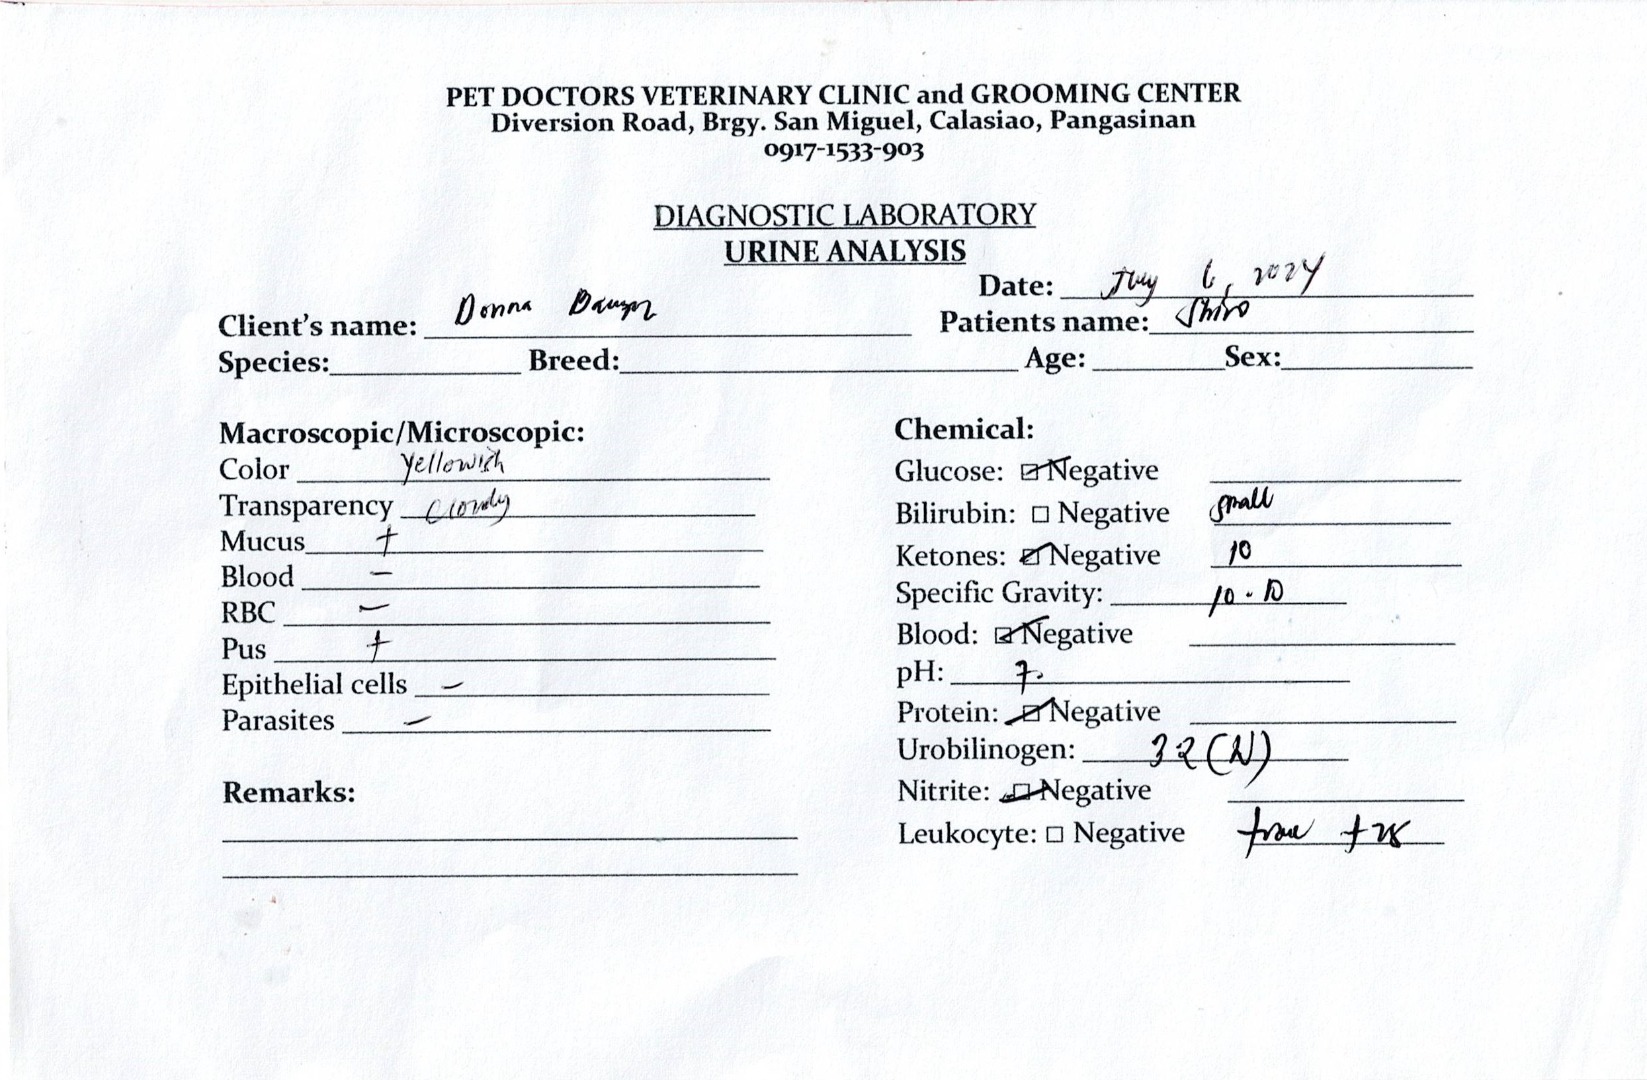 PET DOCTORS VETERINARY CLINIC and GROOMING CENTER
Diversion Road, Brgy. San Miguel, Calasiao, Pangasinan
0917-1533-903
DIAGNOSTIC LABORATORY
URINE ANALYSIS
Date: July 6, 2024
Client's name: Donna
Patients name: Shiro
Species: Breed: Age: Sex:
Macroscopic/Microscopic:
Color yellowish
Transparency cloudy
Mucus +
Blood –
RBC –
Pus +
Epithelial cells –
Parasites –
Remarks:
Chemical:
Glucose: ☑ Negative
Bilirubin: ☐ Negative small
Ketones: ☑ Negative 10
Specific Gravity: 10.10
Blood: ☑ Negative
pH: 7.
Protein: ☑ Negative
Urobilinogen: 32 (N)
Nitrite: ☑ Negative
Leukocyte: ☐ Negative